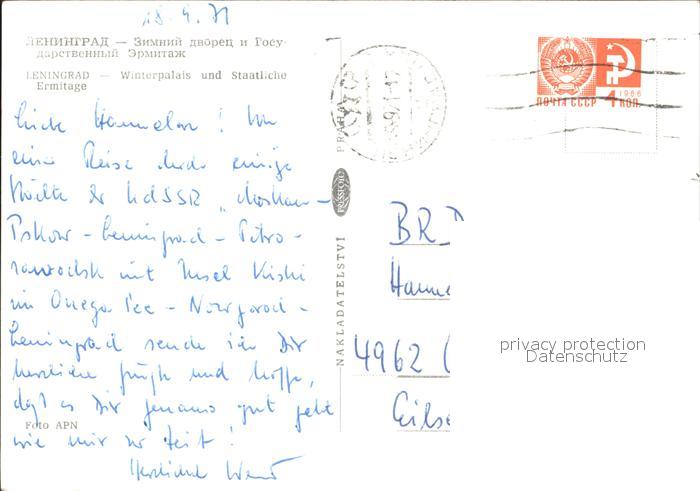 18.4.71
ЛЕНИНГРАД — Зимний дворец и Госу-
дарственный Эрмитаж
LENINGRAD — Winterpalais und Staatliche
Ermitage
Liebe Hannelore! Von
einer Reise durch einige
Städte der UdSSR „Moskau-
Pskow - Leningrad - Petro-
sawodsk mit Insel Kishi
im Onega See - Nowgorod -
Leningrad sende ich Dir
herzliche Grüße und hoffe,
daß es Dir genauso gut geht
wie mir zur Zeit!
Herzlichst
Foto APN
PRAHA
PRESSFOTO
NAKLADATELSTVÍ
ПОЧТА СССР 4 КОП.
1966
BRD
Hanne
4962
Eilse
privacy protection
Datenschutz